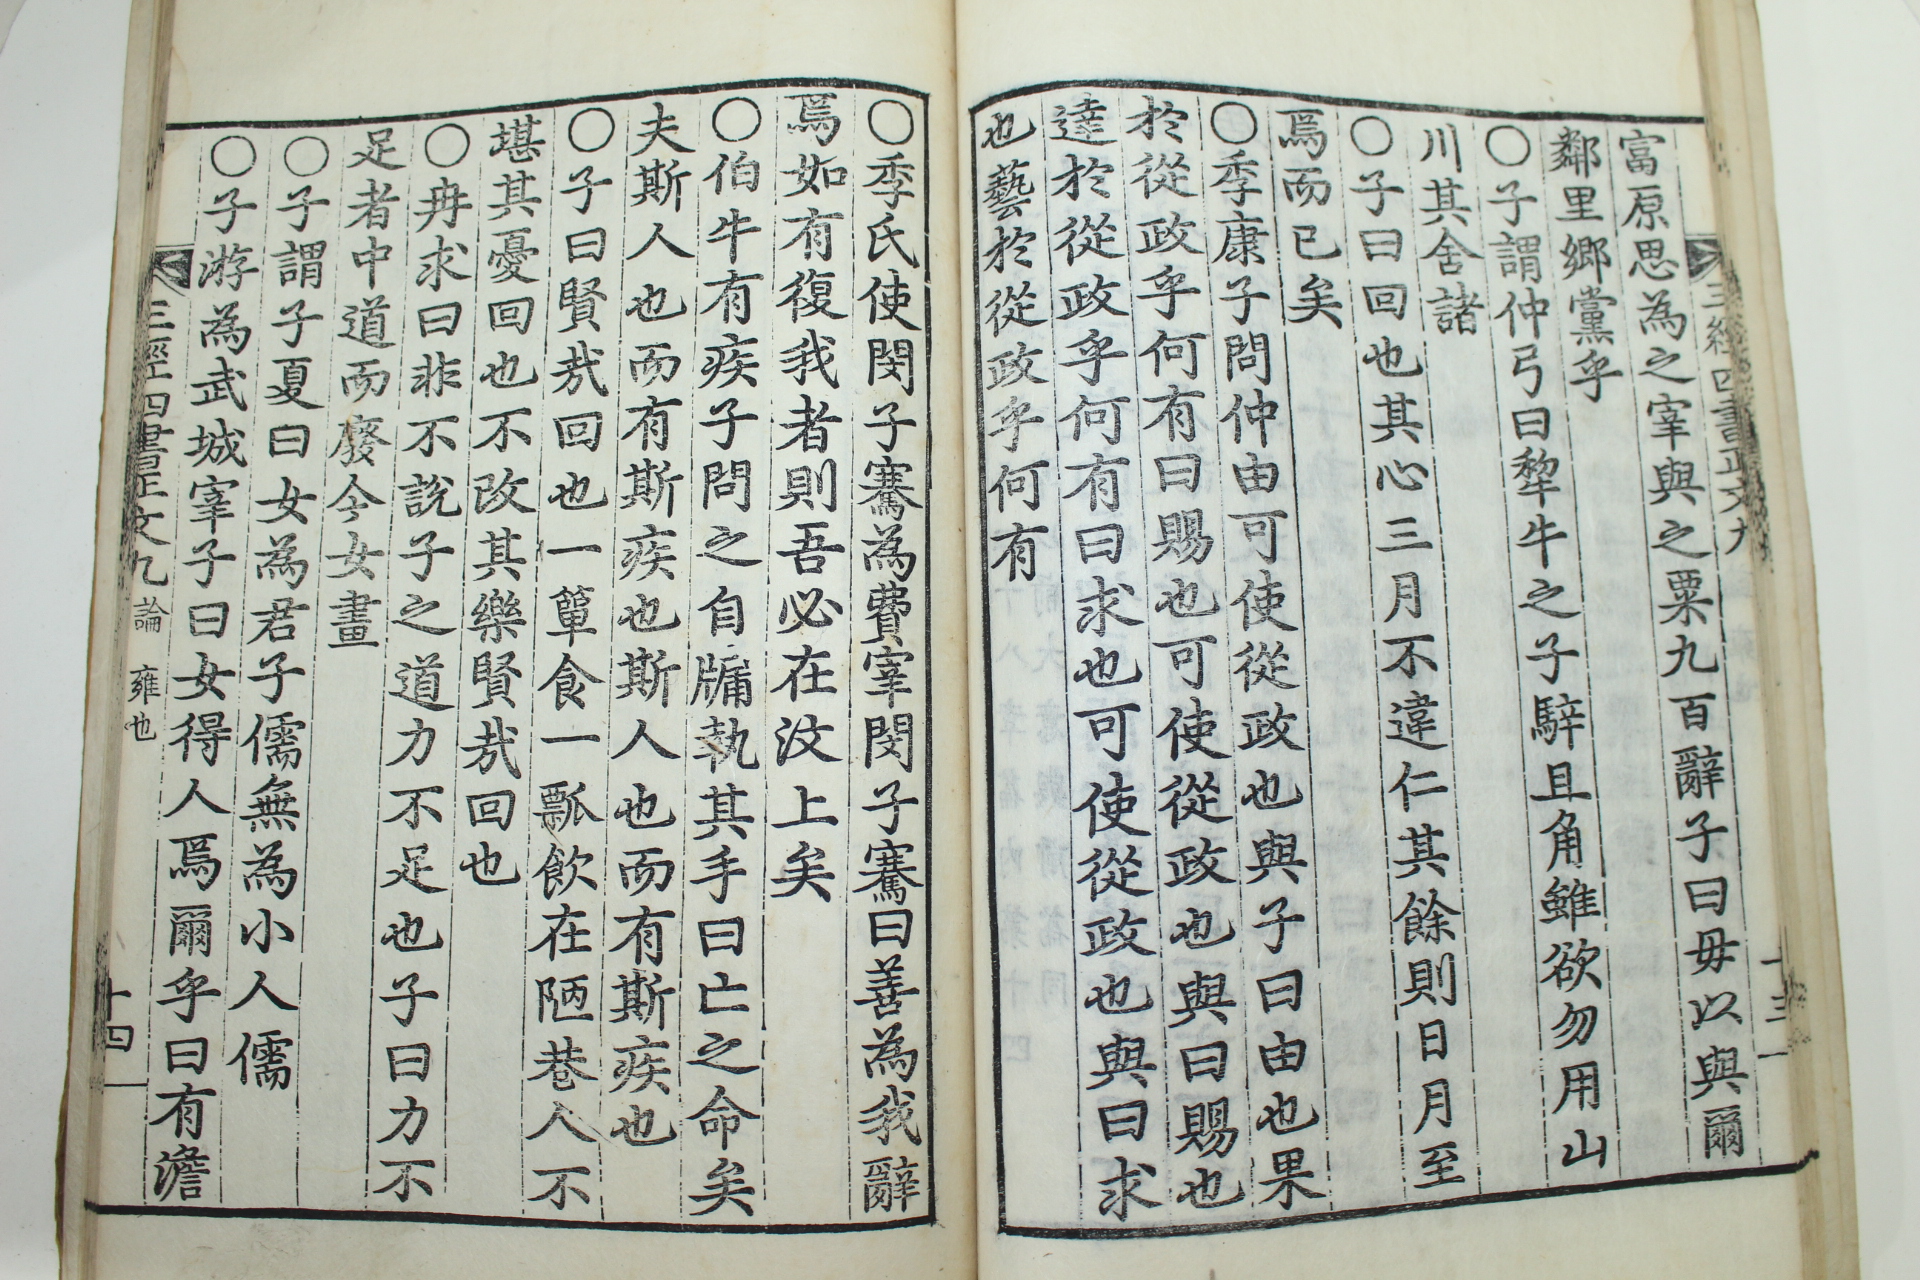 三經四書正文九
十三
富原思為之宰與之粟九百辭子曰毋以與爾
鄰里鄉黨乎
○子謂仲弓曰犂牛之子騂且角雖欲勿用山
川其舍諸
○子曰回也其心三月不違仁其餘則日月至
焉而已矣
○季康子問仲由可使從政也與子曰由也果
於從政乎何有曰賜也可使從政也與曰賜也
達於從政乎何有曰求也可使從政也與曰求
也藝於從政乎何有
○季氏使閔子騫為費宰閔子騫曰善為我辭
焉如有復我者則吾必在汶上矣
○伯牛有疾子問之自牖執其手曰亡之命矣
夫斯人也而有斯疾也斯人也而有斯疾也
○子曰賢哉回也一簞食一瓢飲在陋巷人不
堪其憂回也不改其樂賢哉回也
○冉求曰非不說子之道力不足也子曰力不
足者中道而廢今女畫
○子謂子夏曰女為君子儒無為小人儒
○子游為武城宰子曰女得人焉爾乎曰有澹
三經四書正文九 論 雍也
十四